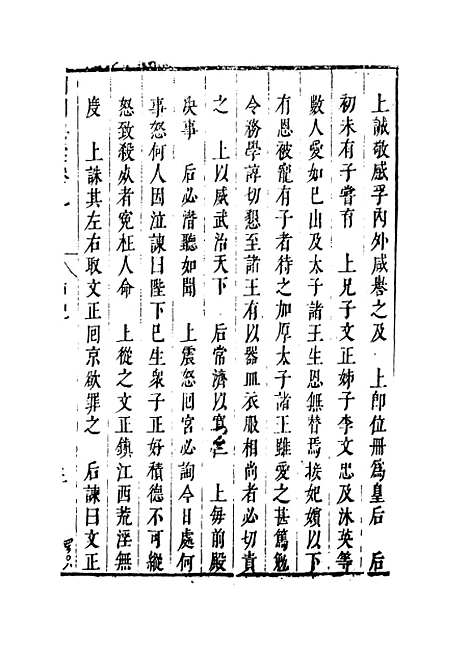 上誠敬感孚內外咸譽之及　上卽位冊爲皇后　后
初未有子嘗育　上兄子文正姊子李文忠及沐英等
數人愛如己出及太子諸王生恩無替焉接妃嬪以下
有恩被寵有子者待之加厚太子諸王雖愛之甚篤勉
令務學諄切懇至諸王有以器皿衣服相尚者必切責
之　上以威武治天下　后常濟以寬　上每前殿
決事　后必潜聽如聞　上震怒囘宮必詢今日處何
事怒何人因泣諫曰陛下已生衆子正好積德不可縱
怒致殺　者寃枉人命　上從之文正鎮江西荒淫無
度　上誅其左右取文正囘京欲罪之　后諫曰文正